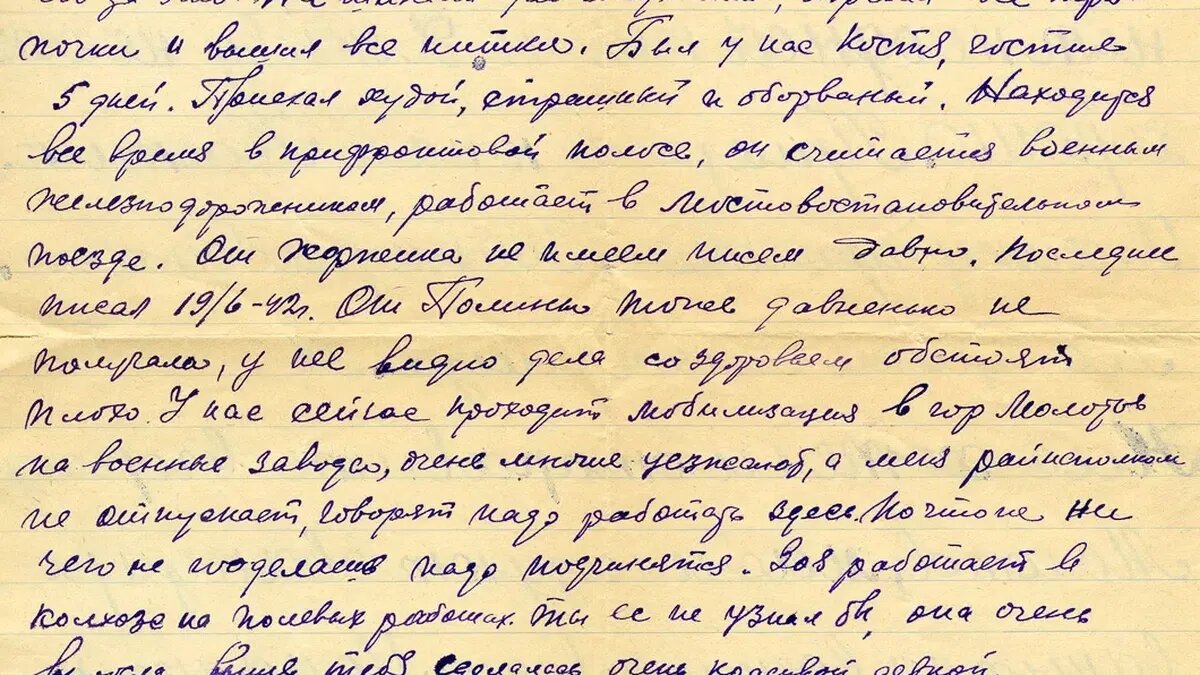 почки и вышил все нитки. Был у нас Костя, гостил
5 дней. Приехал худой, страшный и оборваный. Находится
все время в прифронтовой полосе, он считается военным
железнодорожником, работает в мостовостановительном
поезде. От Жоржика не имеем писем давно. Последнее
писал 19/6-42г. От Полиньки тоже давненько не
получала, у нее видно дела со здоровьем обстоят
плохо. У нас сейчас проходит мобилизация в гор Молотов
на военные заводы, очень многие уезжают, а меня райисполком
не отпускает, говорят надо работать здесь. Ни
чего не поделаешь надо подчинятся. Зоя работает в
колхозе на полевых работах. Ты ее не узнал бы, она очень
выше тебя сделалась очень красивой девкой.